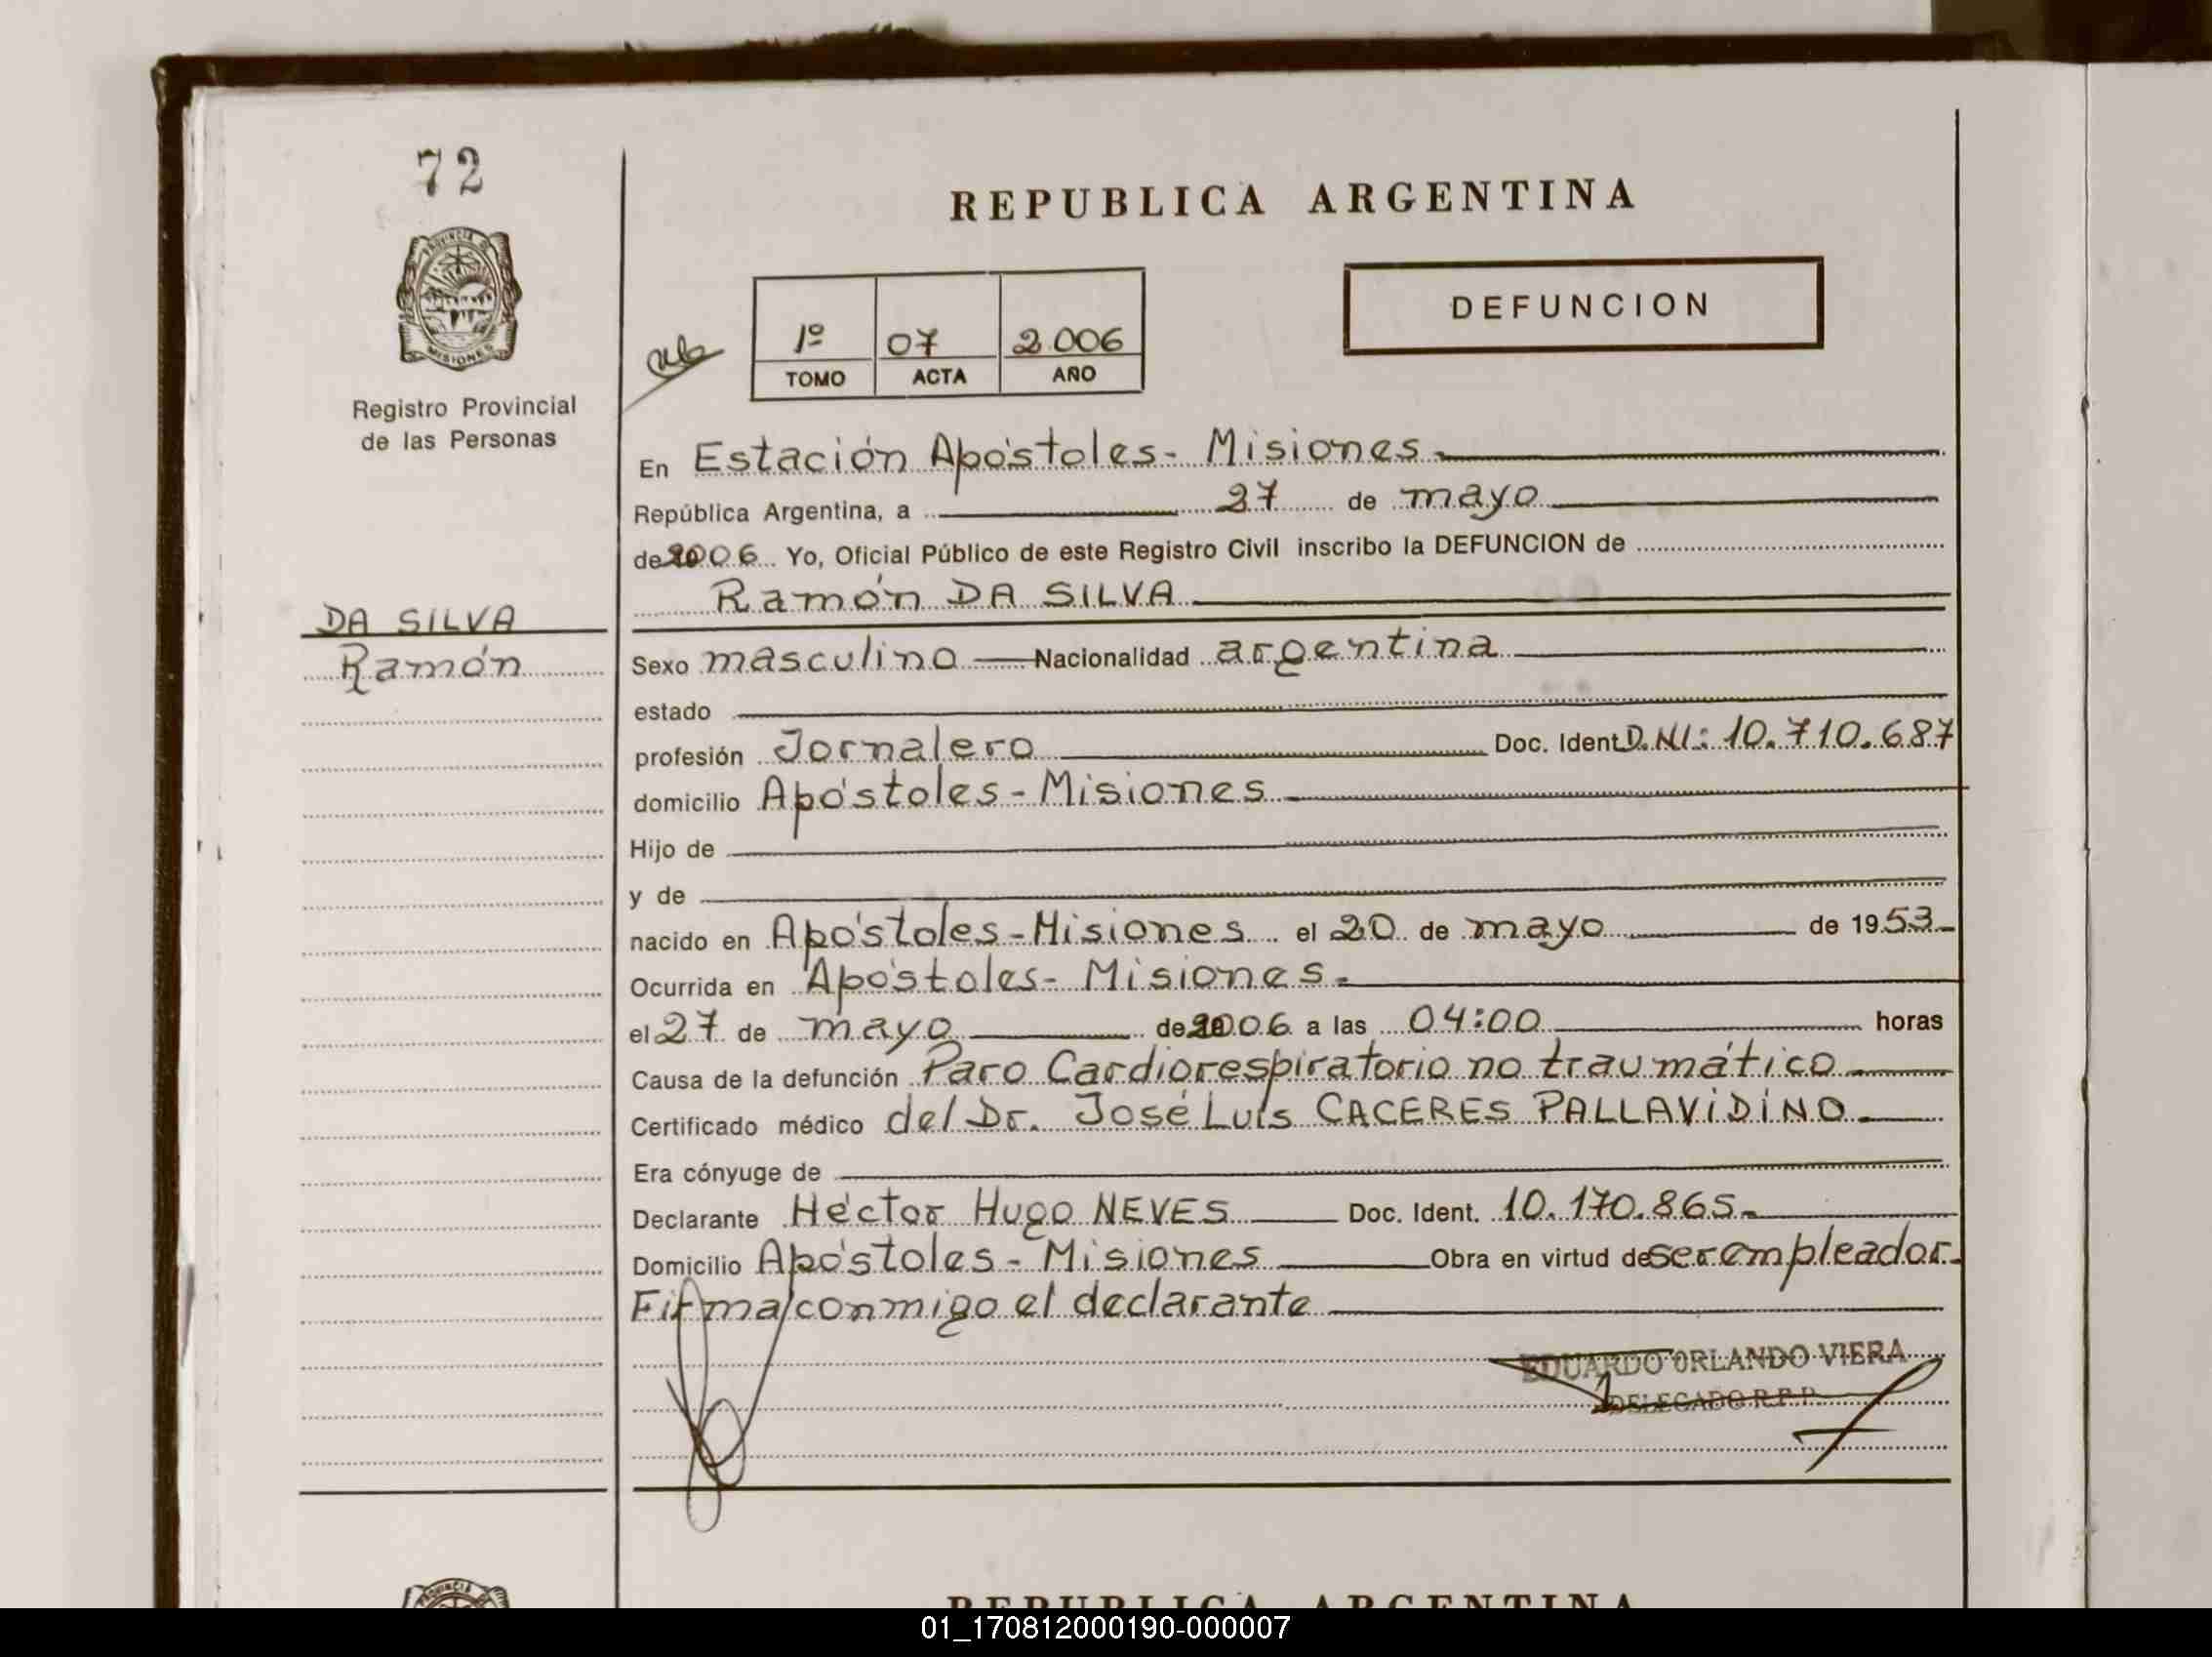 72
PROVINCIA DE
MISIONES
Registro Provincial
de las Personas
DA SILVA
Ramón
REPUBLICA ARGENTINA
DEFUNCION
1º 07 2.006
TOMO ACTA AÑO
En Estación Apóstoles- Misiones.
República Argentina, a 27 de mayo
de 2006 Yo, Oficial Público de este Registro Civil inscribo la DEFUNCION de
Ramón DA SILVA
Sexo masculino Nacionalidad argentina
estado
profesión Jornalero Doc. Ident. D.N.I.: 10.710.687
domicilio Apóstoles - Misiones
Hijo de
y de
nacido en Apóstoles - Misiones el 20 de mayo de 1953
Ocurrida en Apóstoles - Misiones.
el 27 de mayo de 2006 a las 04:00 horas
Causa de la defunción Paro Cardiorespiratorio no traumático
Certificado médico del Dr. José Luis CACERES PALLAVIDINO
Era cónyuge de
Declarante Héctor Hugo NEVES Doc. Ident. 10.170.865.
Domicilio Apóstoles - Misiones Obra en virtud de ser empleador.
Firma conmigo el declarante
EDUARDO ORLANDO VIERA
DELEGADO R.P.P.
REPUBLICA ARGENTINA
01_170812000190-000007